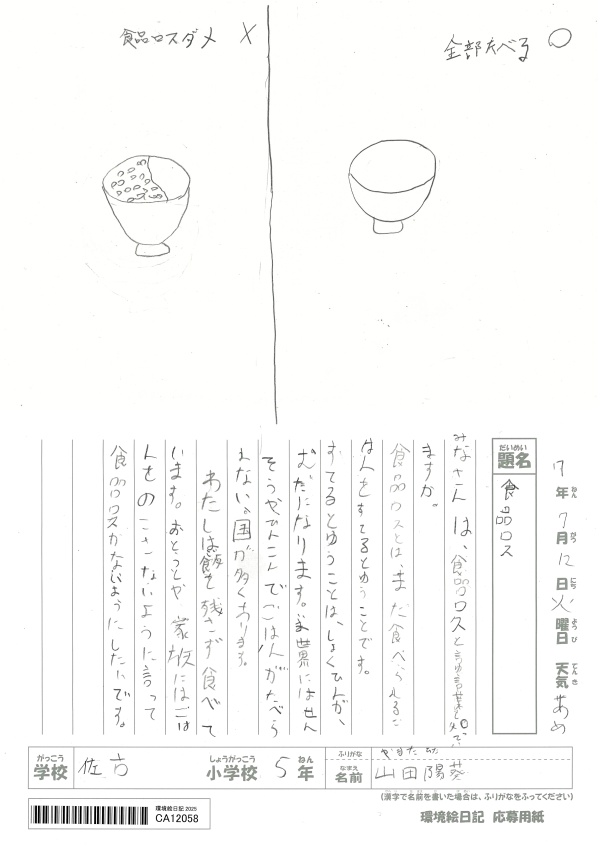 食品ロスダメ ×
全部たべる ○
7年7月12日火曜日 天気 あめ
ねん がつ にち ようび てんき
だいめい
題名 食品ロス
みなさんは、食品ロスと言ゆ言葉を知って
ますか。
食品ロスとは、まだ食べられるご
はんをすてるとゆうことです。
すてるとゆうことは、しょくひんが、
むだになります。世界にはせん
そうやひんこんでごはんがたべら
れない。国が多くあります。
わたしは飯を残さず食べて
います。おとうとや家族にはごは
んをのこさないように言って
食品ロスがなしようにしたいです。
がっこう
学校 佐古
しょうがっこう
小学校 5年
ねん
ふりがな やまだ
なまえ
名前 山田陽葵
(漢字で名前を書いた場合は、ふりがなをふってください)
環境絵日記 2025
CA12058
環境絵日記 応募用紙